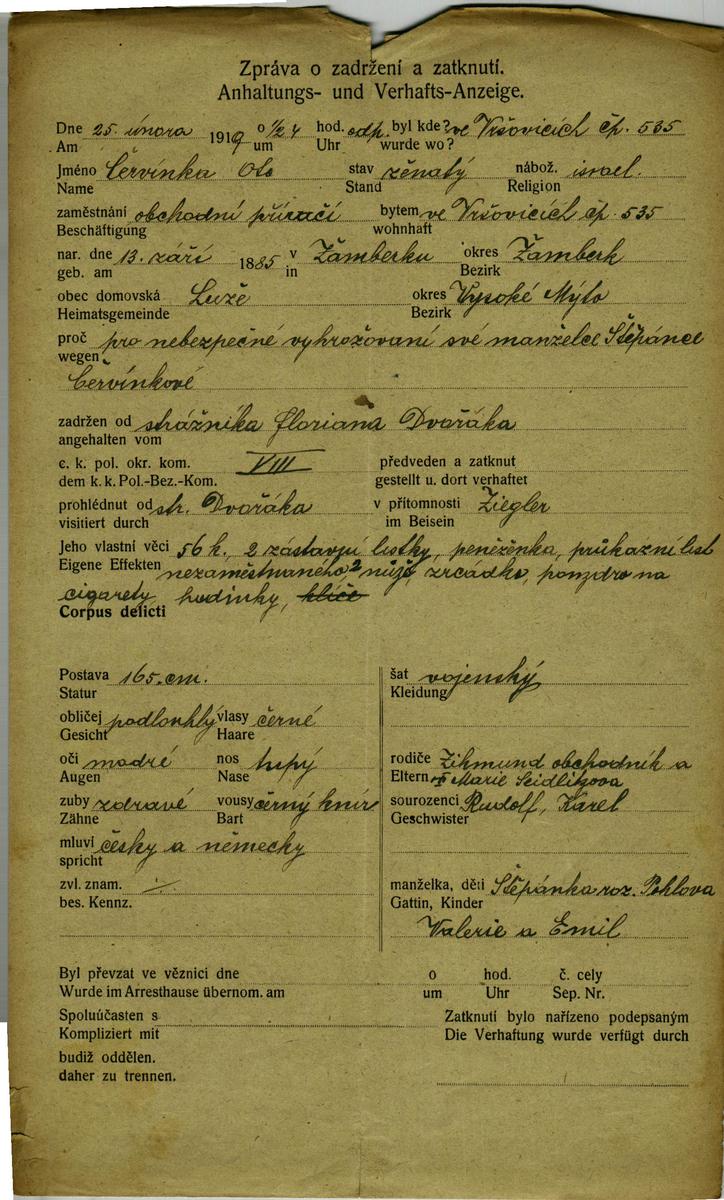 Zpráva o zadržení a zatknutí.
Anhaltungs- und Verhafts-Anzeige.
Dne 25. února 1919 o 1/2 4 hod. odp. byl kde? ve Vršovicích čp. 535
Am um Uhr wurde wo?
Jméno Červínka Oto stav ženatý nábož. israel.
Name Stand Religion
zaměstnání obchodní příručí bytem ve Vršovicích čp. 535
Beschäftigung wohnhaft
nar. dne 13. září 1885 v Žamberku okres Žamberk
geb. am in Bezirk
obec domovská Luže okres Vysoké Mýto
Heimatsgemeinde Bezirk
proč pro nebezpečné vyhrožovaní své manželce Štěpánce
wegen
Červínkové
zadržen od strážníka Floriana Dvořáka
angehalten vom
c. k. pol. okr. kom. VIII předveden a zatknut
dem k. k. Pol.-Bez.-Kom. gestellt u. dort verhaftet
prohlédnut od str. Dvořáka v přítomnosti Ziegler
visitiert durch im Beisein
Jeho vlastní věci 56 k. 2 zástavní lístky, peněženka, průkazní list
Eigene Effekten nezaměstnaného, 2 nůže, zrcádko, pouzdro na
cigarety, hodinky, klíče
Corpus delicti
Postava 165. cm. šat vojenský
Statur Kleidung
obličej podlouhlý vlasy černé
Gesicht Haare
oči modré nos tupý rodiče Zikmund obchodník a
Augen Nase Eltern Marie Seidlitzova
zuby zdravé vousy černý knír sourozenci Rudolf, Karel
Zähne Bart Geschwister
mluví česky a německy
spricht
zvl. znam. ./. manželka, děti Štěpánka roz. Pohlova
bes. Kennz. Gattin, Kinder
Valerie a Emil
Byl převzat ve věznici dne o hod. č. cely
Wurde im Arresthause übernom. am um Uhr Sep. Nr.
Spoluúčasten s Zatknutí bylo nařízeno podepsaným
Kompliziert mit Die Verhaftung wurde verfügt durch
budiž oddělen.
daher zu trennen.